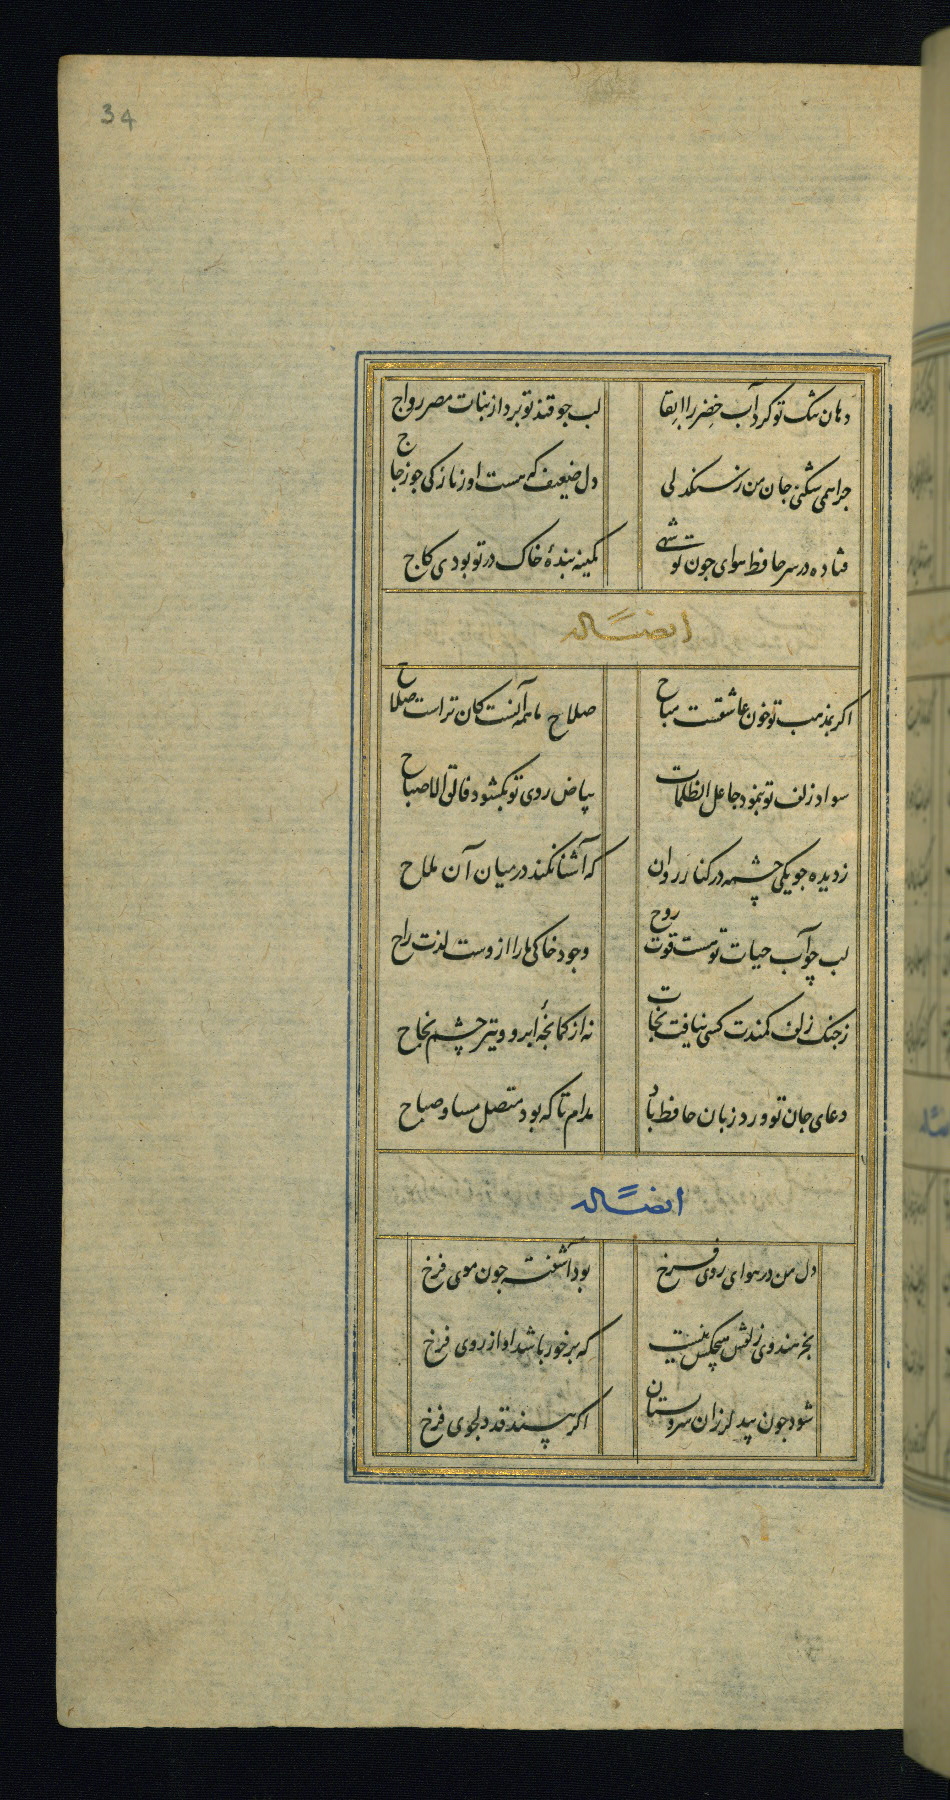 34
دهان تنک تو کرد آب خضر را ابقا لب جو قند تو برد از نبات مصر رواج
جرا همی شکنی جان من ز سنکدلی دل ضعیف که هست او ز نازکی جو زجاج
فتاده در سر حافظ هوای جون تو شهی کمینه بندهٔ خاک در تو بودی کاج
ایضاً له
اکر بمذهب تو خون عاشقست مباح صلاح ما همه آنست کان تراست صلاح
سواد زلف تو بنمود جاعل الظلمات بیاض روی تو بکشود فالق الاصباح
ز دیده جو یکی چشمه در کنار روان که آشنا نکند در میان آن ملاح
لب چو آب حیات تو هست قوت روح وجود خاکی ما را ازوست لذت راح
ز جنک زلف کمندت کسی نیافت نجات نه از کمانجهٔ ابرو و تیر چشم نجاح
دعای جان تو ورد زبان حافظ باد مدام تا که بود متصل مسا و صباح
ایضاً له
دل من در هوای روی فرخ بود آشفته جون موی فرخ
بجز هندوی زلفش هیچکس نیست که برخور باشد او از روی فرخ
شود جون بید لرزان سرو بستان اکر بیند قد دلجوی فرخ